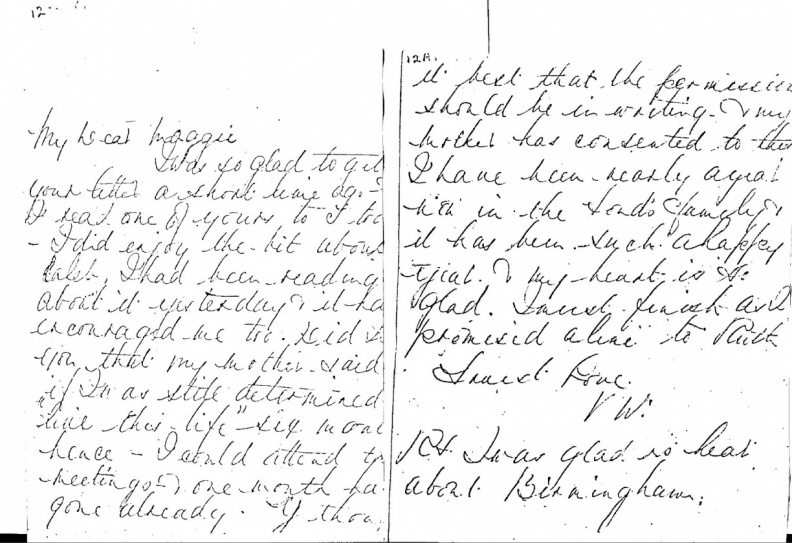 12
My Dear Maggie
I was so glad to get
your letter a short time ago -
& read one of yours to I too
- I did enjoy the bit about
Caleb, I had been reading
about it yesterday & it ha
encouraged me too. Did I
you that my mother said
if I was still determined
"live this life" six mont
hence - I could attend
meetings & one month ha
gone already. If thou
12A.
it best that the permission
should be in writing - & my
Mother has consented to this
I have been nearly a year
now in the Lord's family &
it has been such a happy
year. & my heart is so
glad. I must finish as I
promised a line to Faith
Sincerest Love.
V W.
PS I was glad to hear
about Birmingham.